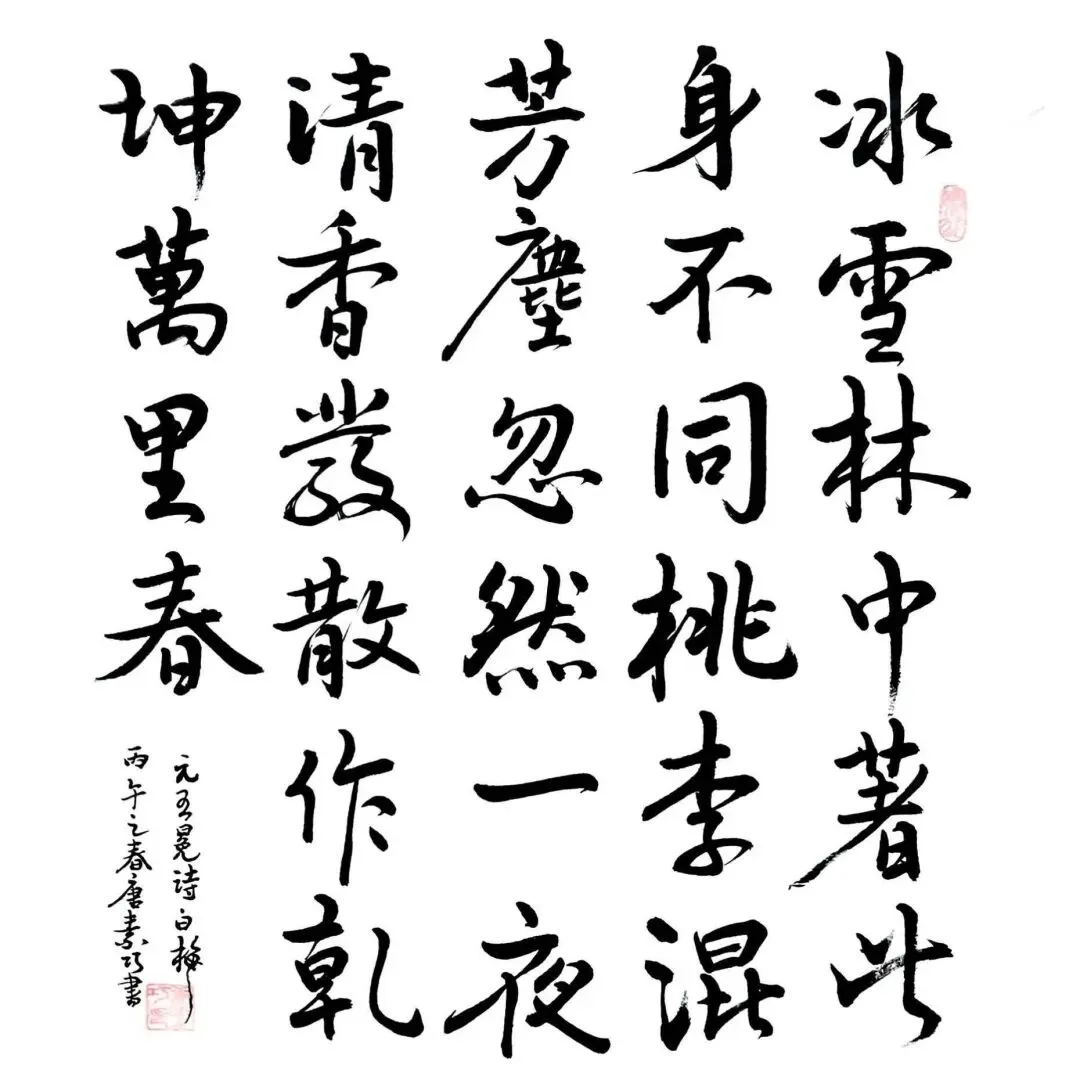 冰雪林中著此
身不同桃李混
芳塵忽然一夜
清香發散作乾
坤萬里春
元王冕詩白梅
丙午之春唐素巧書